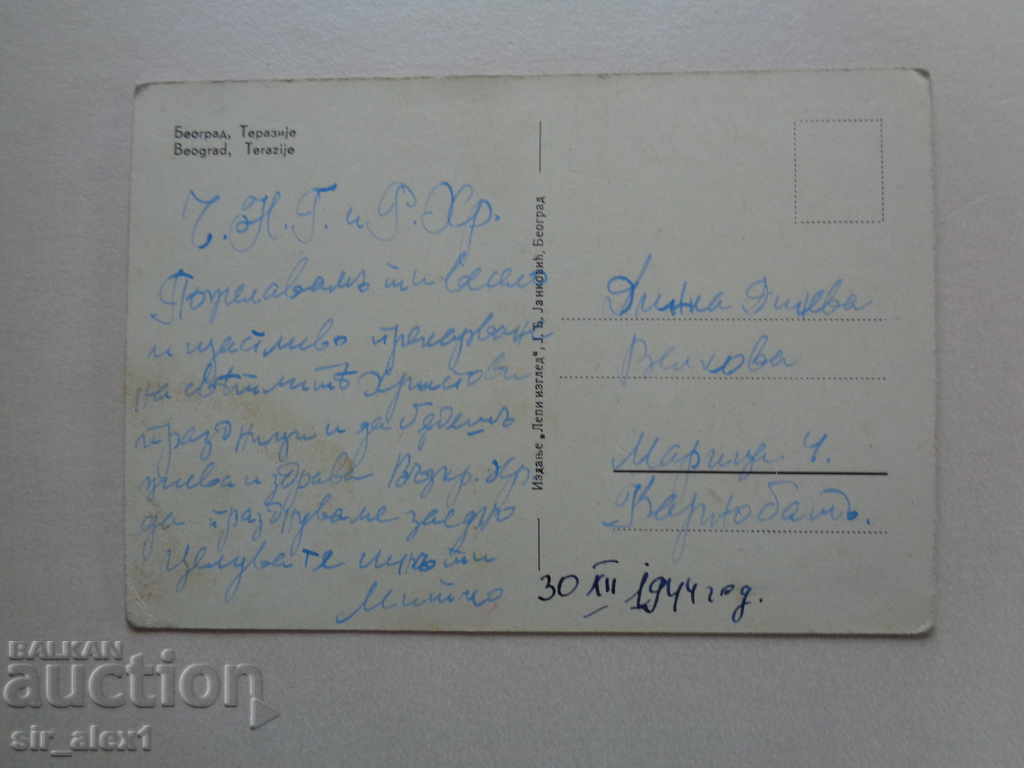 Београд, Теразије
Beograd, Terazije
Ч.Н.Г. и Р.Хр.
Пожелавамъ ти весело
и щастливо прекарване
на светлитѣ Христови
праздници и да бѫдешъ
жива и здрава Възкр. Хр.
да празднуваме заедно
Целува те
Митко
Издање „Лепи изглед", J. Ђ. Јанковић, Београд
Динка Динева
Велкова
Марица 4.
Карнобатъ.
30 XII 1944 год.
BALKAN
auction
sir_alex1